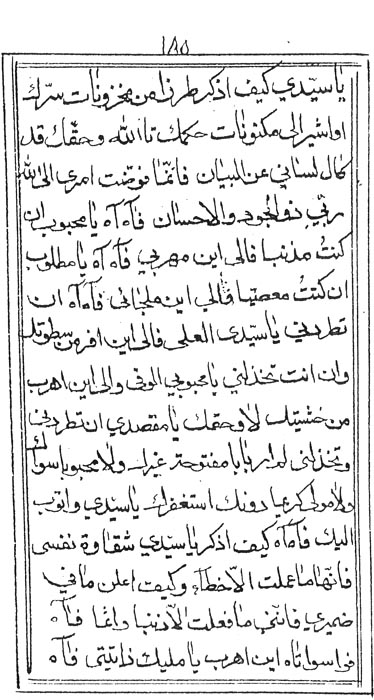 ١٨٥
يا سيّدي كيف اذكر طرزا من مخزونات سرّك
او اشير الى مكنونات حكمك تاالله وحقّك قد
كال لساني عن البيان فانّما فوّضت امرى الى الله
ربّي ذو الجود والاحسان فآه آه يا محبوب ان
كنتُ مذنبا فالى اين مهربي فآه آه يا مطلوب
ان كنتُ معصيا فالي اين ملجائي فآه آه ان
تطردني يا سيّدى العلى فالى اين افر من سطوتك
وان انت تخذلني يا محبوبي الوفى والى اين اهرب
من خشيتك لا وحقك يا مقصدي ان تطردني
وتخذلنى لم ار بابا مفتوحة غيرك ولا محبوبا سواك
ولا مولى كريما دونك استغفرك يا سيّدي واتوب
اليك فآه آه كيف اذكر يا سيّدي شقاوة نفسى
فانّها ما عملت الّا خطآء وكيف اعلن ما في
ضميري فانّني ما فعلت الّا ذنبا واثما فآه
فواسواتاه اين اهرب يا مليك ذاتيتي فآه